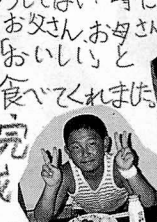 お父さん、お母さん
「おいしい」と
食べてくれました。
完成